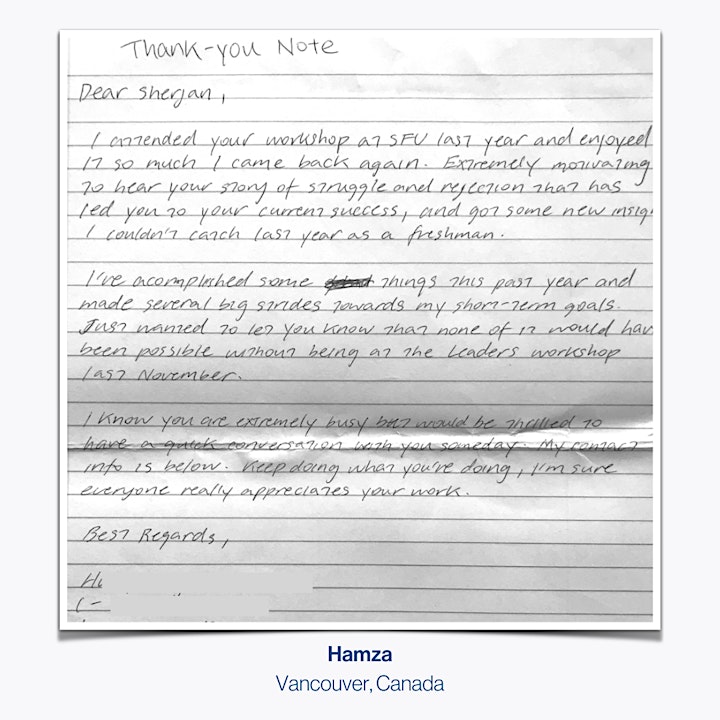 Thank-you Note
Dear Sherjan,
I attended your workshop at SFU last year and enjoyed
it so much I came back again. Extremely motivating
to hear your story of struggle and rejection that has
led you to your current success, and got some new insig
I couldn't catch last year as a freshman.
I've acomplished some things this past year and
made several big strides towards my short-term goals.
Just wanted to let you know that none of it would hav
been possible without being at the Leaders workshop
last November.
I know you are extremely busy but would be thrilled to
have a quick conversation with you someday. My contact
info is below. Keep doing what you're doing, I'm sure
everyone really appreciates your work.
Best Regards,
Hamza
Vancouver, Canada